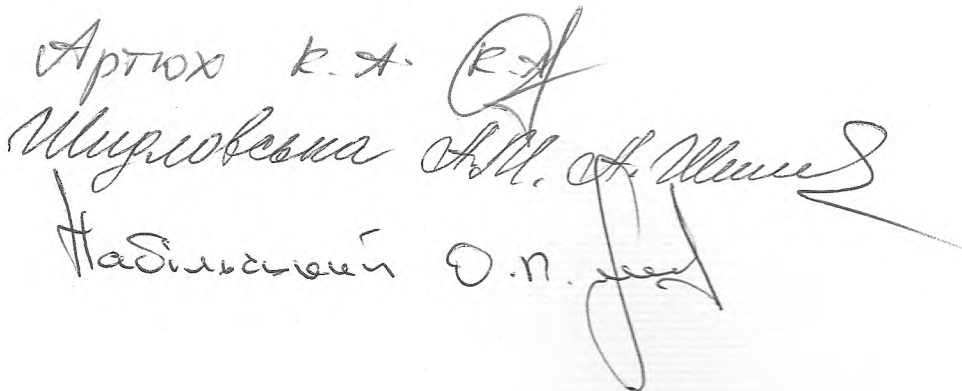 Артюх К.А. К.А
Шидловська А.М. А. Ши
Набільський О.П.